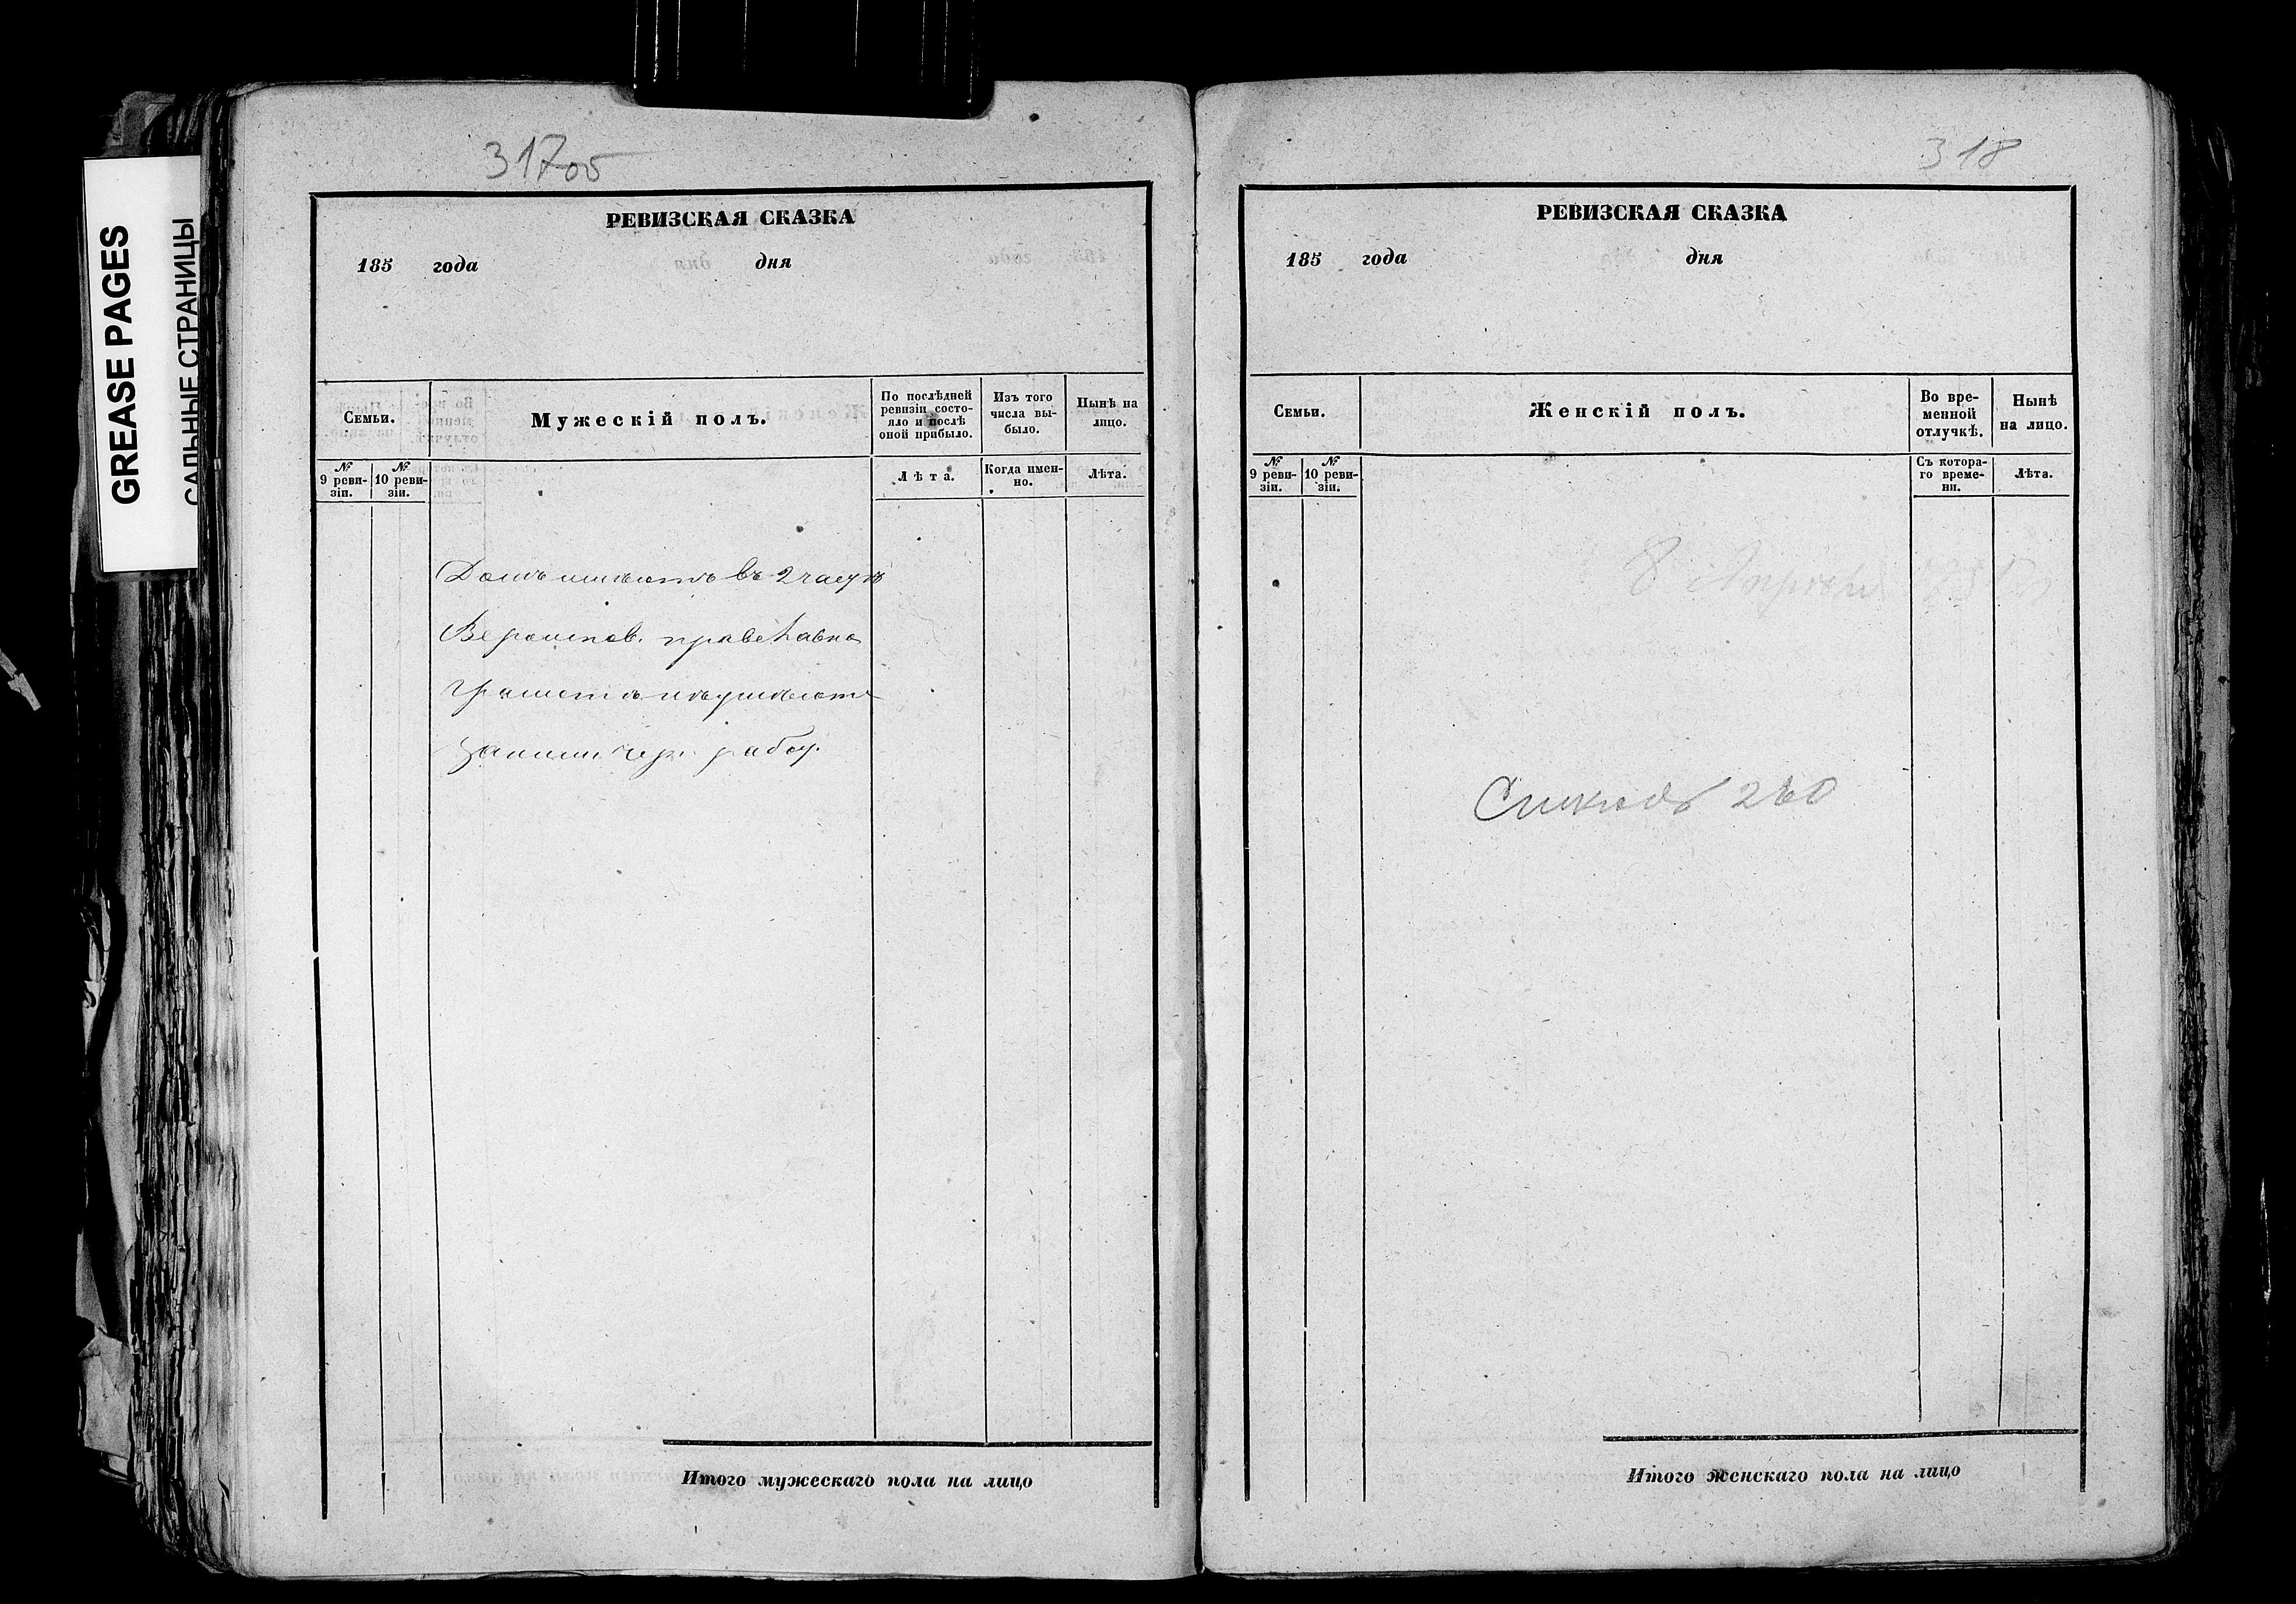 GREASE PAGES
САЛЬНЫЕ СТРАНИЦЫ
317об
РЕВИЗСКАЯ СКАЗКА
185 года дня
Семьи.
Мужескій полъ.
По послѣдней ревизіи состо-
яло и послѣ
оной прибыло.
Изъ того
числа вы-
было.
Нынѣ на
лицо.
№ 9 реви-
зіи.
№ 10 реви-
зіи.
Лѣта.
Когда имен-
но.
Лѣта.
Домъ имѣетъ въ 2 части
Вероиспов. православно
грамотѣ не умѣетъ
заним. чер. рабо.
Итого мужескаго пола на лицо
318
РЕВИЗСКАЯ СКАЗКА
185 года дня
Семьи.
Женскій полъ.
Во вре-
менной
отлучкѣ.
Нынѣ
на лицо.
№ 9 реви-
зіи.
№ 10 реви-
зіи.
Съ котора-
го време-
ни.
Лѣта.
8 Апрѣля
260
Итого женскаго пола на лицо